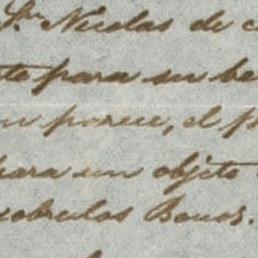 Sn. Nicolas de c
para su be
parece, el p
para un objeto
sobre los Bonos.